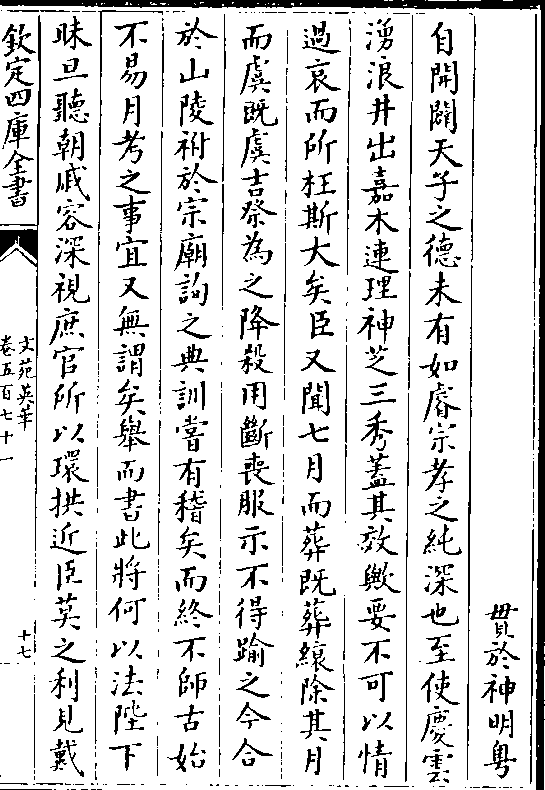 貫於神明粤
自開闢天子之德未有如睿宗孝之純深也至使慶雲
湧浪井出嘉木連理神芝三秀蓋其效歟要不可以情
過哀而所枉斯大矣臣又聞七月而葬既葬縗除其月
而虞既虞吉祭為之降殺用斷喪服示不得踰之今合
於山陵祔於宗廟詢之典訓嘗有稽矣而終不師古始
不易月考之事宜又無謂矣舉而書此將何以法陛下
昧旦聽朝戚容深視庶官所以環拱近臣莫之利見戴
欽定四庫全書
文苑英華
卷五百七十一
十七